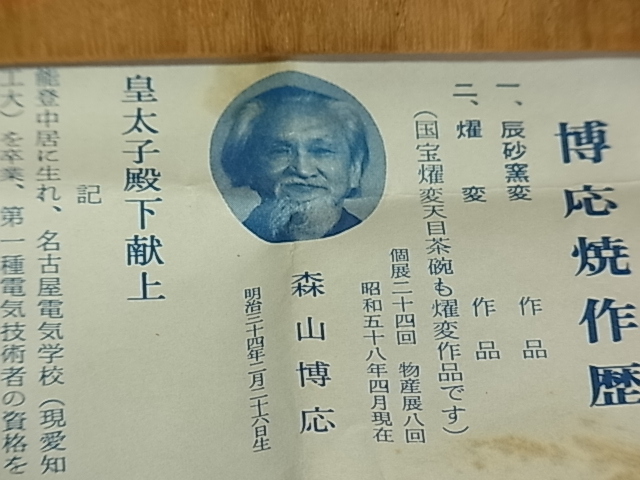 博応焼作歴
一、辰砂窯変　作品
二、燿変　作品
（国宝燿変天目茶碗も燿変作品です）
個展二十四回　物産展八回
昭和五十八年四月現在
森山博応
明治三十四年二月二十六日生
皇太子殿下献上
記
能登中居に生れ、名古屋電気学校（現愛知
工大）を卒業、第一種電気技術者の資格を